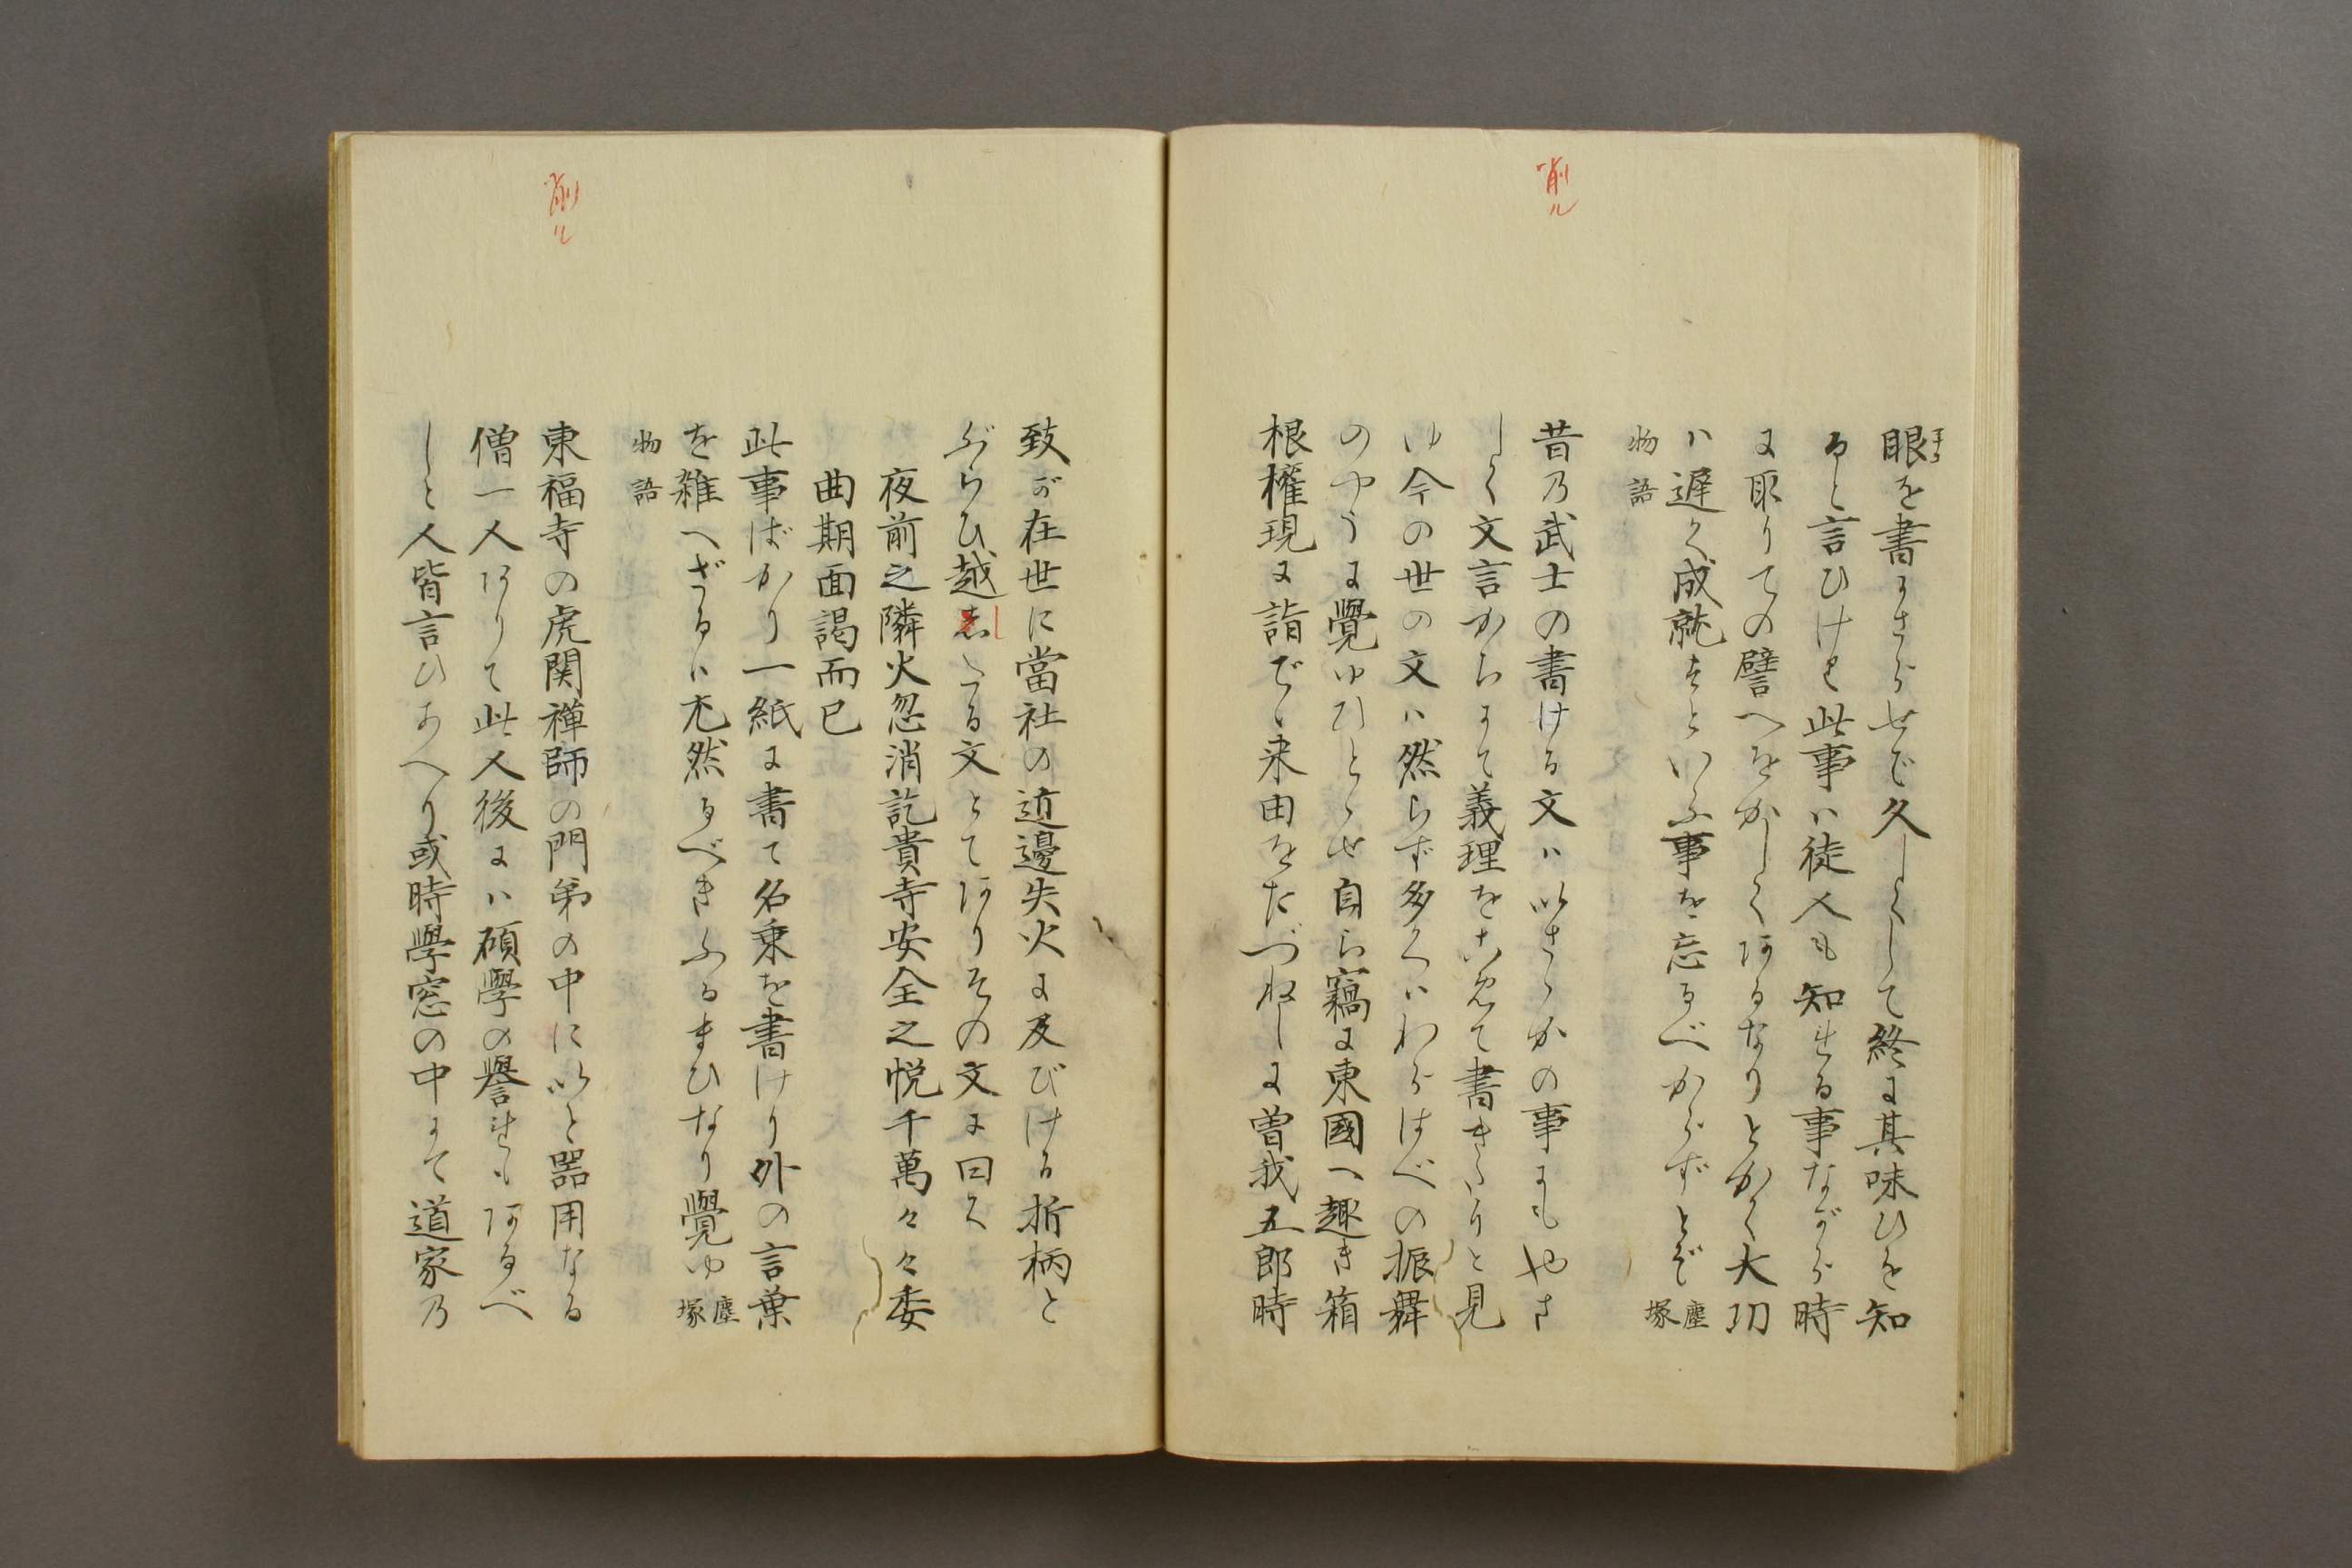 眼を書きさらせで久しくして終に其味ひを知
まな
ると言ひけり此事ハ徒人も知れる事ながら時
に取りての譬へをかしくあるなりとかく大功
ハ遅く成就すといふ事を忘るべからずとぞ塵塚
物語
削ル
昔乃武士の書ける文ハいさゝかの事にもやさ
しく文言かろにて義理をこめて書きたりと見
ゆ今の世の文ハ然らず多くハわらはべの振舞
のやうに覺ゆひとゝせ自ら竊に東國へ趣き箱
根權現に詣でゝ来由をたづねしに曽我五郎時
致が在世に當社の近邊失火に及びける折柄と
ぶらひ越したる文とてありその文に曰く
夜前之隣火忽消訖貴寺安全之悦千萬々々委
曲期面謁而已
此事ばかり一紙に書て名乗を書けり外の言葉
を雑へざるハ尤然るべきふるまひなり覺ゆ塵塚
物語
削ル
東福寺の虎関禅師の門弟の中にいと器用なる
僧一人ありて此人後にハ碩學の譽れもあるべ
しと人皆言ひあへり或時學窓の中にて道家乃